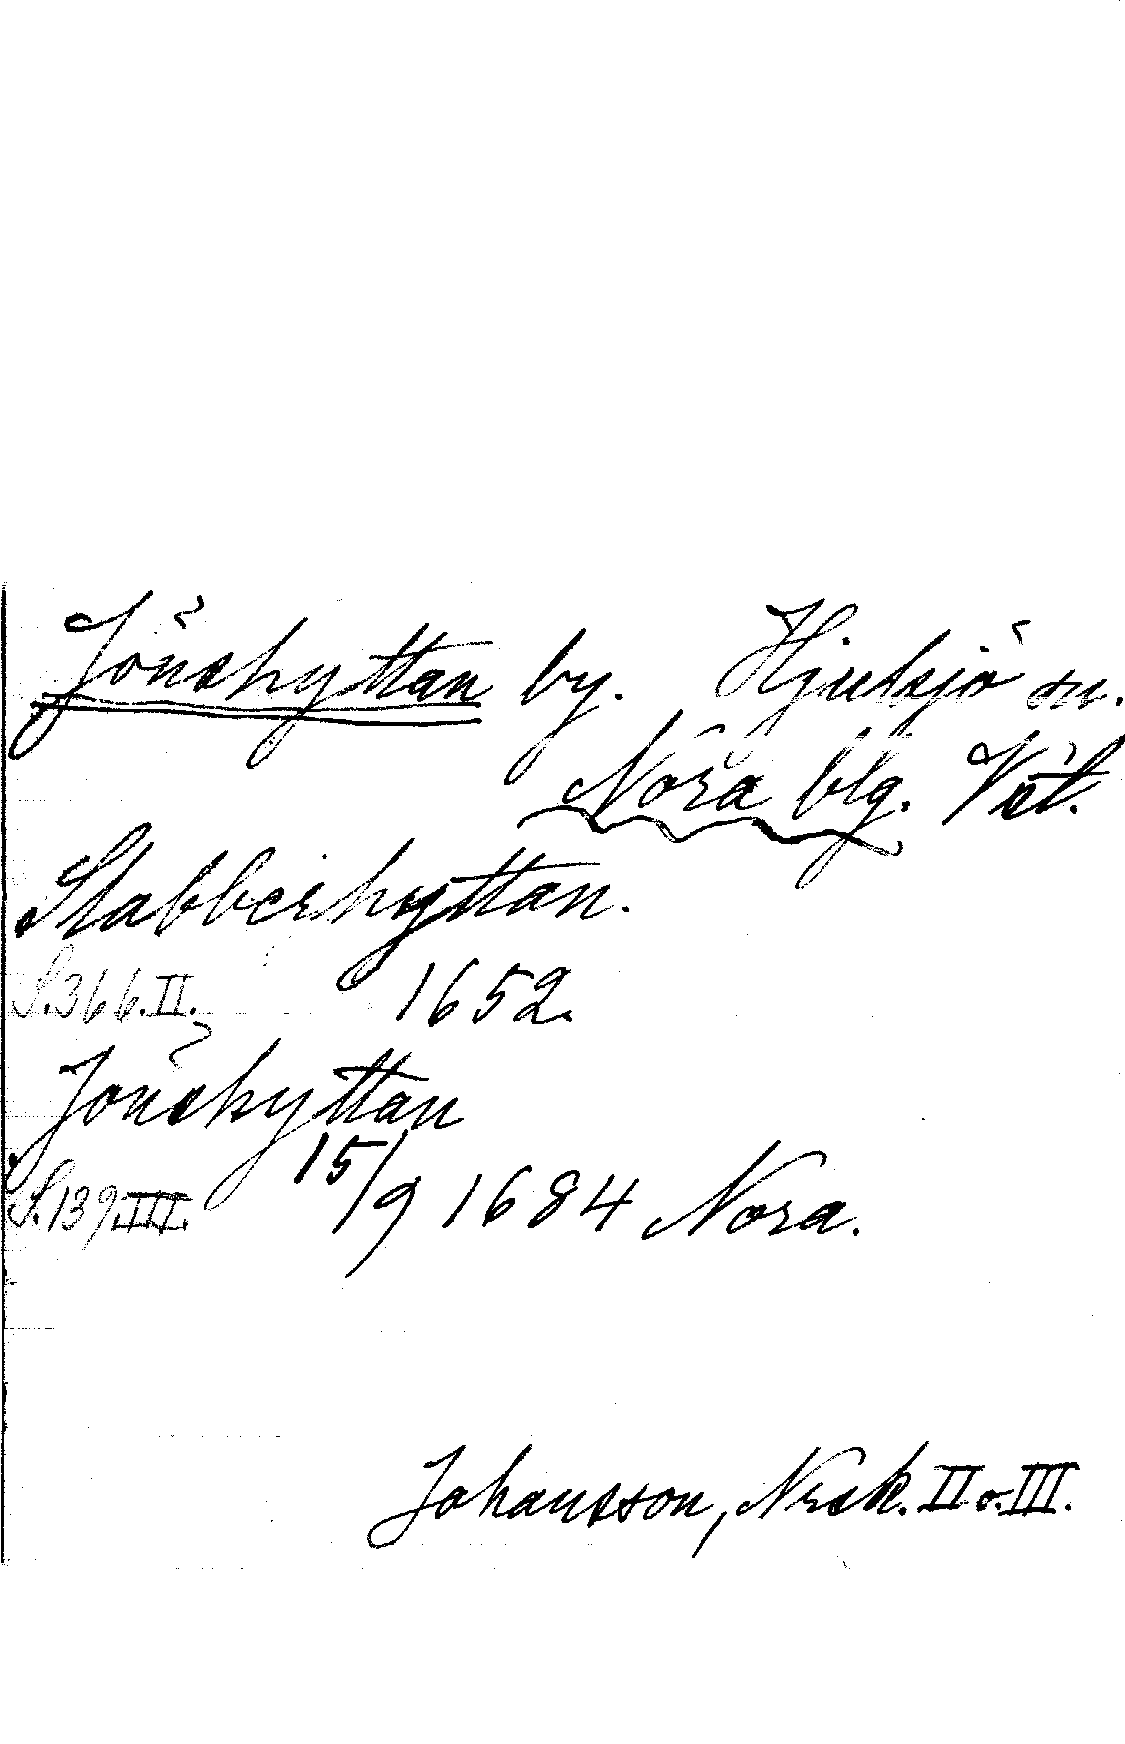 Jönshyttan by. Hjulsjö sn.
Nora blg. Vstl.
Stabberhyttan.
S.366.II. 1652.
Jönshyttan
S.139.III. 15/9 1684 Nora.
Johansson, Nrsk. II o. III.